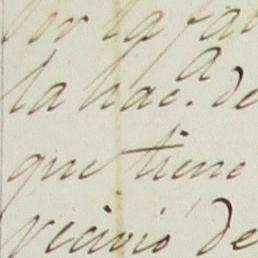 por la fal
la hac.ª de
que tiene
recivió de